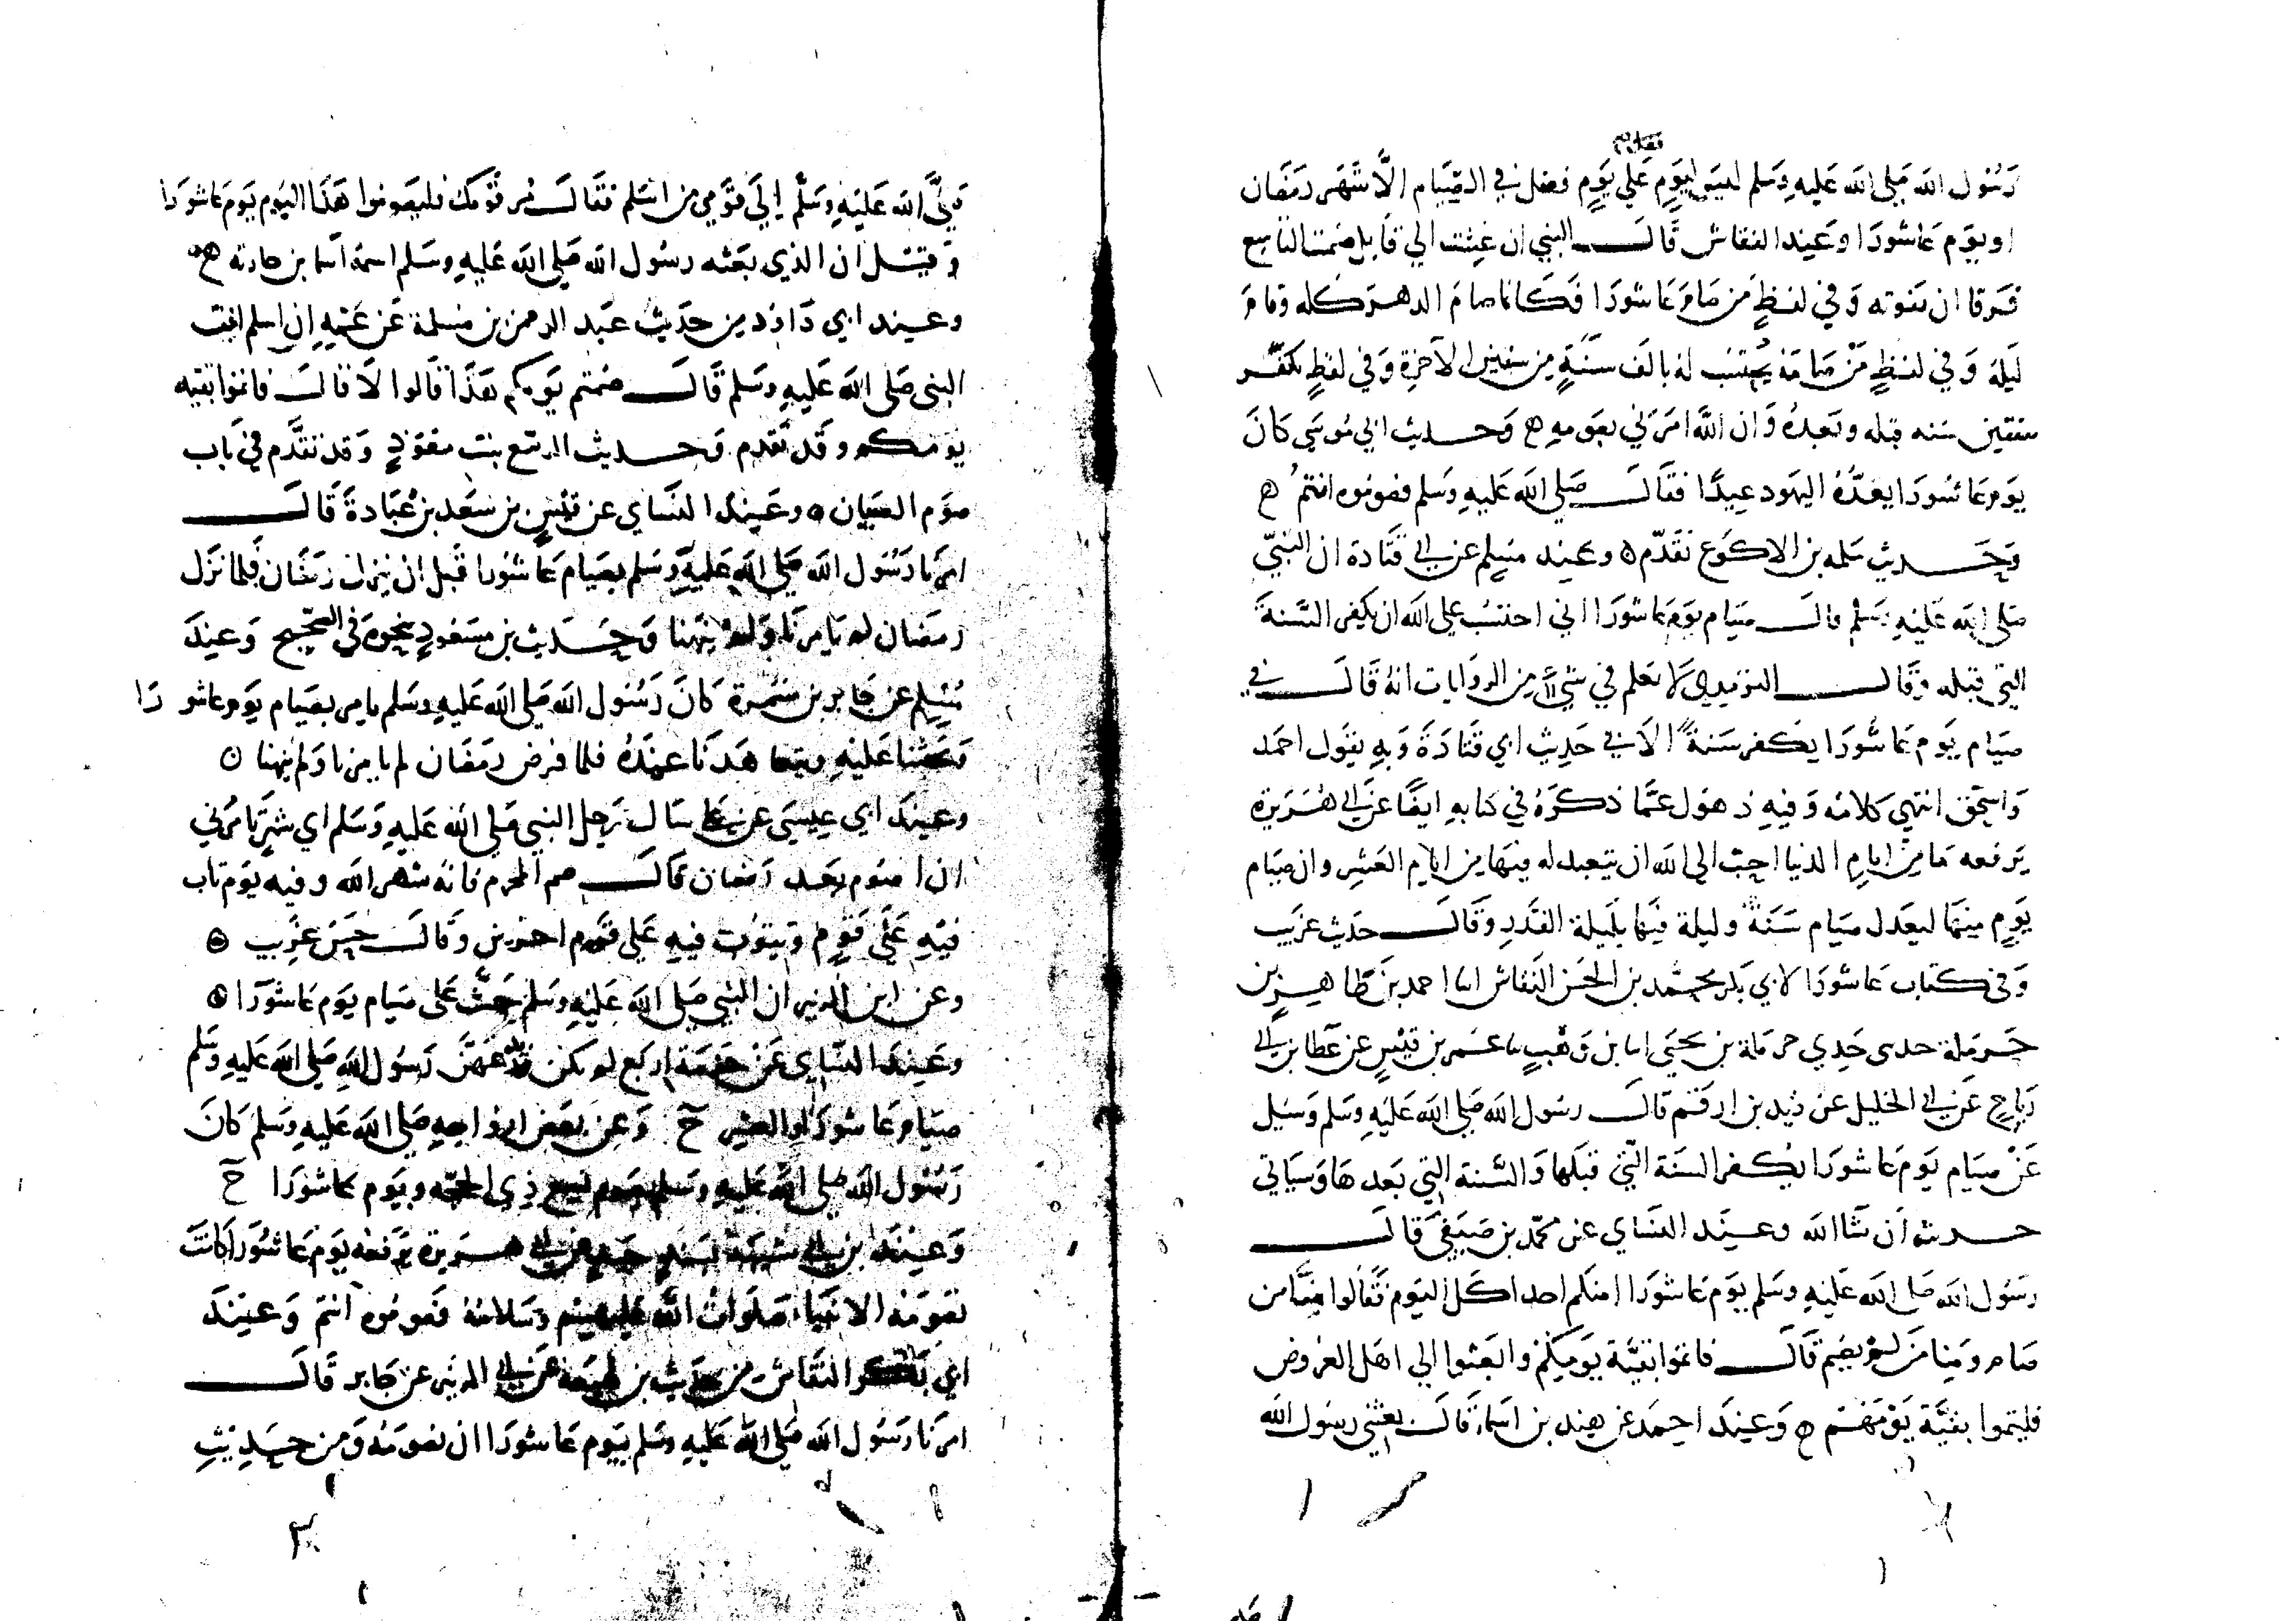 رَسُول الله صَلى الله عَليهِ وَسَلم ليسَ ليَومٍ عَلى يَومٍ فضل في الصّيَام الَّا شَهر رَمَضان
او يوَم عَاشورَا وعَيند النقاش قَال النبي ان عِشت الى قابل صُمت التاسع
فرَقا ان يَفوته وَفي لفظٍ مَن صَامَ عَاشورَا فكَانما صامَ الدهرَ كله وقامَ
ليَلهُ وَفي لفظٍ مَنْ صَامَهُ يُحتسَب لهُ بالف سَنَةٍ مِن سنين الآخرَةِ وَفي لفظٍ يكفّر
سنتين سَنه قبله وبَعدهُ وَان اللهَ امَرَني بصَومهِ ه وَحديث ابي موُسَى كانَ
يَوم عَاشُورَا يعَدُّهُ اليَهود عِيدًا فقَال صَلى الله عَليهِ وَسَلم فصومُوه انتم ه
وَحَديث سَلمه بن الاكوَع تقَدّم ه وعِند مسَلم عن ابي قتَادة ان النبيّ
صَلى الله عَليْهِ وَسَلم قال صيَام يوَم عَاشورَا اني احتسبُ عَلى الله ان يكفر السَّنةَ
التي قبله وَقال الترمذي لَا نعَلم في شيءٍ من الروَايات انهُ قَال في
صيَام يَوم عَاشُورَا يكفر سَنةً الَا في حَدِيث ابي قتَادَةَ وَبهِ يقوُل احمَد
وَاسحَق انتهى كلامُه وَفيهِ ذهوُل عَمَّا ذكرَهُ في كتابهِ ايضًا عَن ابي هُرَيرَة
يَرفعه مَا مِن ايام الدنيا احَبّ الى الله ان يتعبد له فيهَا مِن ايام العَشرِ وان صيَام
يَومٍ مِنهَا ليعَدل صيَام سَنَة وليلة فيَها بلَيلة القَدرِ وَقَال حَديث غرَيب
وَفي كتاب عَاشورَا لابي بَكر محَمّد بن الحسَن النقاش انا احمد بن طَاهِر بن
حَرمَلة حدثني جَدِي حرمَلة بن يحَيَى انا بن وَهْبٍ نا عُمَر بن قيَسٍ عن عَطا بن ابي
رَباح عَن ابي الخليل عن زيد بن ارقم قال رسُول الله صَلى الله عَليَهِ وَسَلم وَسُيل
عَنْ صيَام يَومَ عَاشورَا يكفر السَنَة التي قبلَها وَالسَّنة التي بَعدهَا وَسيَاتي
حديثه اَن شَا الله وعيند النسَاي عن محمَّد بن صَيفي قَال
رسُول الله صَلى الله عَليَهِ وَسَلم يوَم عَاشورَا امنكم احد اكَل اليَوم فقَالوا منَّا من
صَام ومنا من لم يَصُم قَال فاتموا بقيَّة يَومِكمُ وابعَثوا الى اهل العَرُوض
فليتموا بقيَّة يَوْمَهُم ه وَعِيندَ احمَد عن هِيند بن اسَما قَال بعَثني رسُول الله
صَلىَّ الله عَليَهِ وَسَلَّم إلى قوَمي من اسَلم فقَال مُر قَوْمكَ فليَصومُوا هَذَا اليَوم يَوم عَاشورَا
وَقيَل ان الذي بَعَثه رسُول الله صَلى الله عَليَهِ وسَلم اسمهُ اسَما بن حارثه ه
وعِند ابي دَاوُد مِن حدَيث عَبد الرحمن بن مسَلمة عَن عَمّهِ ان اسلم اتت
النبي صَلى الله عَليهِ وسَلم قَال صُمتم يَومكم هَذَا قالوا لَا قال فاتموا بقيَه
يومكم وقَد تقدم وَحديث الربَيع بنت معَوّذٍ وَقد تقدَّم في بَاب
صوَم الصبيان ه وعَيندَ النسَاي عن قيَسٍ بن سَعَد بن عُبَادةَ قَال
امَرنا رَسُول الله صَلى الله عَليَهِ وَسَلم بصيَام عَاشورا قبَل ان ينزل رمَضَان فلما نزَل
رمَضَان لم يَامرنا وَلم ينهَنا وَحَديث بن مَسعُودٍ بنحَوهِ في الصحيح وَعيندَ
مُسلم عن جَابر بن سَمُرة كانَ رَسُول الله صَلى الله عَليَهِ وَسَلم يامر بصيَام يَوم عَاشورَا
وَيحَثنا عَليَهِ ويتعَاهَدنا عندَهُ فلما فرض رمَضَان لم يَامرنا وَلم ينهَنا ه
وعيندَ ابي عِيسَى عن عَلي سَال رَجل النبي صَلى الله عَليَهِ وَسَلم اي شَهرٍ تامُرُني
ان اصوُم بعَد رَمَضان قَال صم المحرم فانهُ شهر الله وفيه يوَم تاب
فيَهِ عَلَى قوَمٍ وَيتوُب فيهِ عَلى قوَم اخرين وَقَال حَسَن غرَيب ه
وعن ابن الزبير ان النبي صَلى الله عَليَهِ وسَلم يحَثّ عَلى صيَام يوَم عَاشورَا ه
وعَيندَ النسَاي عَن حَفصَة اربَع لم يكن يدَعَهُنَّ رَسُول الله صَلى الله عَليَه وسَلم
صيَام عَاشورَا والعشر حَ وَعن بعَض ازوَاجهِ صَلى الله عَليَهِ وَسَلم كانَ
رَسُول الله صَلى الله عَليَهِ وسَلم يصَوم تسع ذي الحجَّه ويَوم عَاشورَا حَ
وَعيندَ بن ابي شيبَة بسَندٍ جَيدٍ عن ابي هُرَيرة يرَفعه يوَم عَاشُورَا كانَت
تصَومَهُ الانبيَاء صَلوَات الله عليهم وَسَلامهُ فصَومُوه انتم وَعيندَ
ابي بَكر النقَاش من حدَيث بن لهَيعَة عَن ابي الزبَير عن جَابر قَال
امرَنا رَسُول الله صَلى الله عَليَهِ وسَلم بيَوم عَاشورَا ان نصَومَهُ وَمن حَديثِ